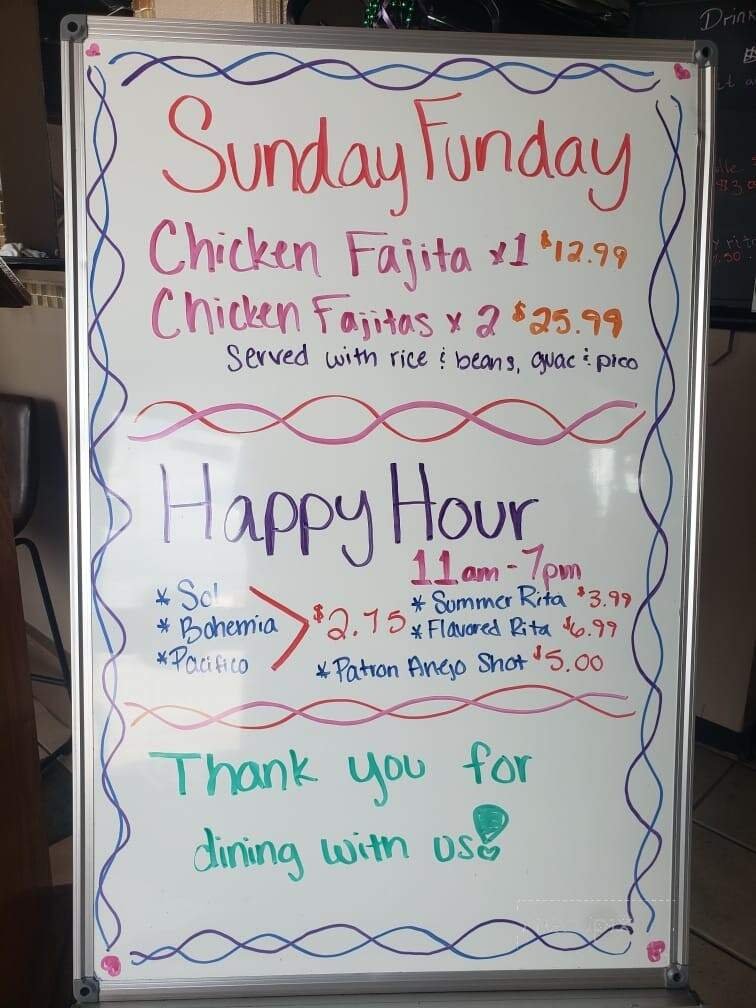 Sunday Funday
Chicken Fajita x1 $12.99
Chicken Fajitas x 2 $25.99
Served with rice & beans, guac & pico
Happy Hour
11am - 7pm
* Sol
* Bohemia
* Pacifico
$2.75
* Summer Rita $3.99
* Flavored Rita $6.99
* Patron Anejo Shot $5.00
Thank you for
dining with us!
Drink